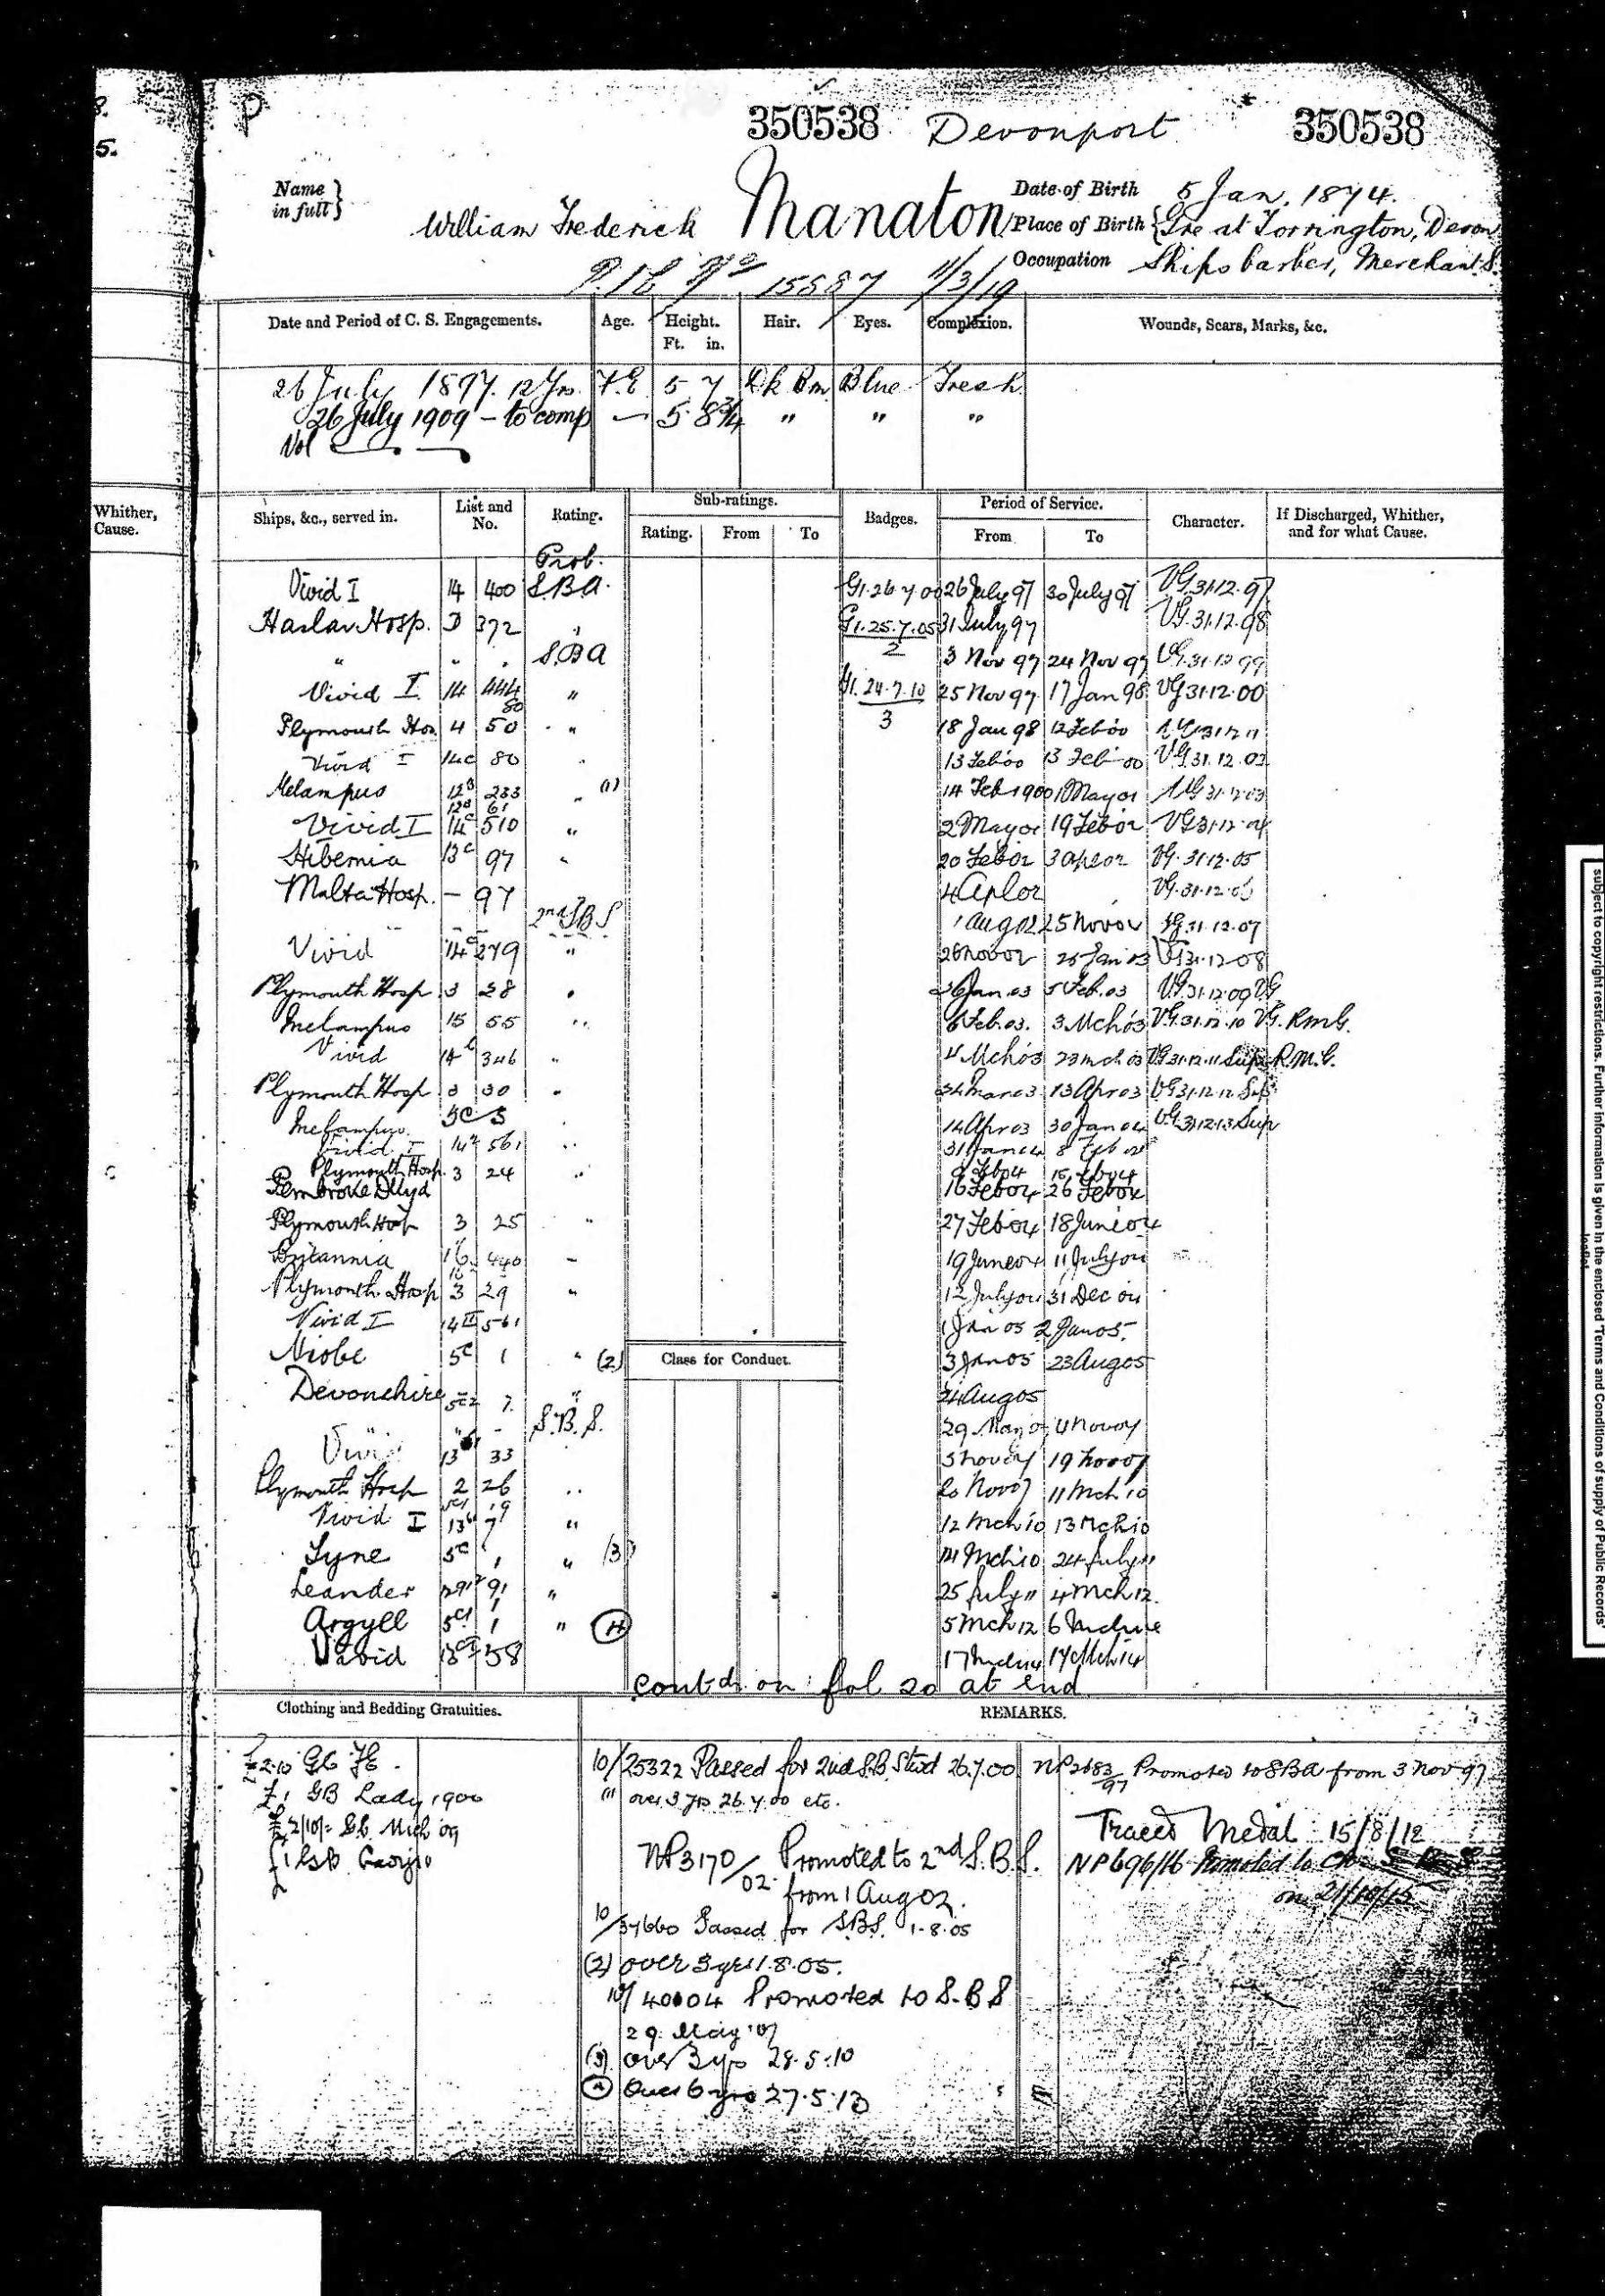 P
350538 Devonport 350538
Name in full } William Frederick Manaton
Date of Birth 5 Jan. 1874.
Place of Birth { Gre at Torrington, Devon
Occupation Ships barber, Merchant S.
11/3/19
Date and Period of C. S. Engagements. Age. Height. Ft. in. Hair. Eyes. Complexion. Wounds, Scars, Marks, &c.
26 July 1897. 12 Yrs. F.E. 5 7 Dk Brn Blue Fresh
26 July 1909 – to comp — 5 8¾ " " "
Vol
Whither, Cause.
Ships, &c., served in. List and No. Rating. Sub-ratings. Rating. From To Badges. Period of Service. From To Character. If Discharged, Whither, and for what Cause.
Prob.
Vivid I 14 400 S.B.A. G1.26.7.00 26 July 97 30 July 97 VG.31.12.97
Haslar Hosp. D 372 " G1.25.7.05 31 July 97 VG.31.12.98
2
" " . S.B.A 3 Nov 97 24 Nov 97 VG.31.12.99
Vivid I 14 444 " G1.24.7.10 25 Nov 97 17 Jan 98 VG 31.12.00
80
3
Plymouth Hos. 4 50 " 18 Jan 98 12 Feb 00
Vivid I 14c 80 " 13 Feb 00 13 Feb 00 VG.31.12.02
Melampus 12B 233 " (1) 14 Feb 1900 1 May 01 VG 31.12.03
61
Vivid I 14c 510 " 2 May 01 19 Feb 02 VG 31.12.04
Hibernia 13c 97 " 20 Feb 02 3 Apl 02 VG.31.12.05
Malta Hosp. – 97 4 Apl 02 VG.31.12.06
2nd SBS 1 Aug 02 25 Nov 02 VG 31.12.07
Vivid 14c 279 " 26 Nov 02 25 Jan 03 VG 31.12.08
Plymouth Hosp 3 28 " 26 Jan.03 5 Feb.03 VG.31.12.09 VG
Melampus 15 55 " 6 Feb.03. 3 Mch 03 VG.31.12.10 VG. RMG.
Vivid 14 346 " 4 Mch 03 23 Mch 03 VG 31.12.11 Sup R.M.G.
Plymouth Hosp 3 30 " 24 Mar 03 13 Apr 03 VG 31.12.12 Sup
Melampus 5C 3 14 Apr 03 30 Jan 04 VG.31.12.13 Sup
Vivid I 14 561 " 31 Jan 04 8 Feb 04
Plymouth Hosp. 3 24 " 9 Feb 04 15 Feb 04
Pembroke Dkyd 16 Feb 04 26 Feb 04
Plymouth Hosp 3 25 " 27 Feb 04 18 June 04
Britannia 16 440 – 19 June 04 11 July 04
Plymouth Hosp 3 29 " 12 July 04 31 Dec 04
Vivid I 14 561 1 Jan 05 2 Jan 05.
Niobe 5c 1 " (2) Class for Conduct. 3 Jan 05 23 Aug 05
Devonshire 7. " 24 Aug 05
" - S.B.S. 29 May 07 4 Nov 07
Vivid 13 33 5 Nov 07 19 Nov 07
Plymouth Hosp 2 26 " 20 Nov 07 11 Mch 10
Vivid I 13 79 " 12 Mch 10 13 Mch 10
Tyne 5c 1 " (3) 14 Mch 10 24 July 11
Leander 91 " 25 July 11 4 Mch 12.
Argyll 5 1 " (4) 5 Mch 12
Vivid 58 17 Mch 14
contd. on fol 20 at end
Clothing and Bedding Gratuities. REMARKS.
£2.10 Gb FE.
£1 GB Lady 1900
£2/10/= Gb Mich 09
£1 GSB
10/25322 Passed for 2nd S.B. Stwd 26.7.00
(1) over 3 yrs 26.7.00 etc.
NP3170/02. Promoted to 2nd S.B.S. from 1 Aug 02.
10/37660 Passed for SBS. 1.8.05
(2) over 3 yrs 1.8.05.
10/40004 Promoted to S.B.S
29. May '07
(3) over 3 yrs 28.5.10
(4) Over 6 yrs 27.5.13
NP2683/97 Promoted to SBA from 3 Nov 97
Traced Medal 15/8/12
NP696/16 Promoted to Ch S B S
on 21/10/15
subject to copyright restrictions. Further information is given in the enclosed 'Terms and Conditions of supply of Public Records' leaflet